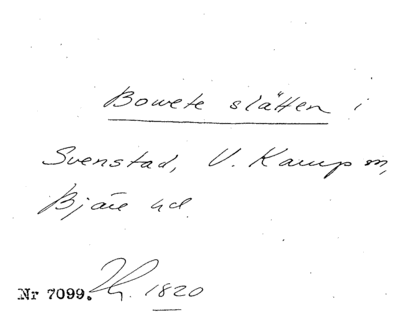 Bowete slätten i
Svenstad, V. Karup sn,
Bjäre hd.
Nr 7099. 1820